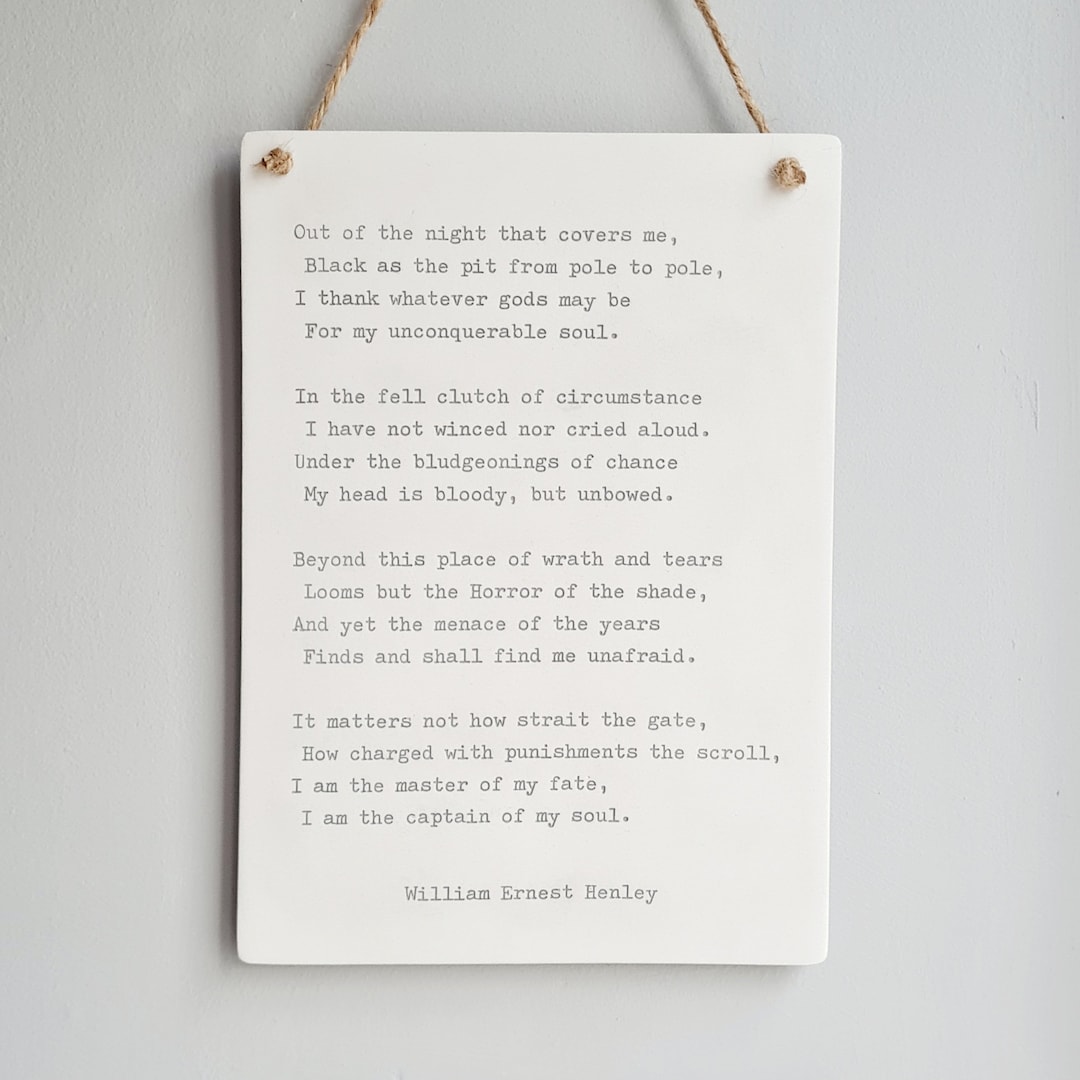 Out of the night that covers me,
Black as the pit from pole to pole,
I thank whatever gods may be
For my unconquerable soul.
In the fell clutch of circumstance
I have not winced nor cried aloud.
Under the bludgeonings of chance
My head is bloody, but unbowed.
Beyond this place of wrath and tears
Looms but the Horror of the shade,
And yet the menace of the years
Finds and shall find me unafraid.
It matters not how strait the gate,
How charged with punishments the scroll,
I am the master of my fate,
I am the captain of my soul.
William Ernest Henley